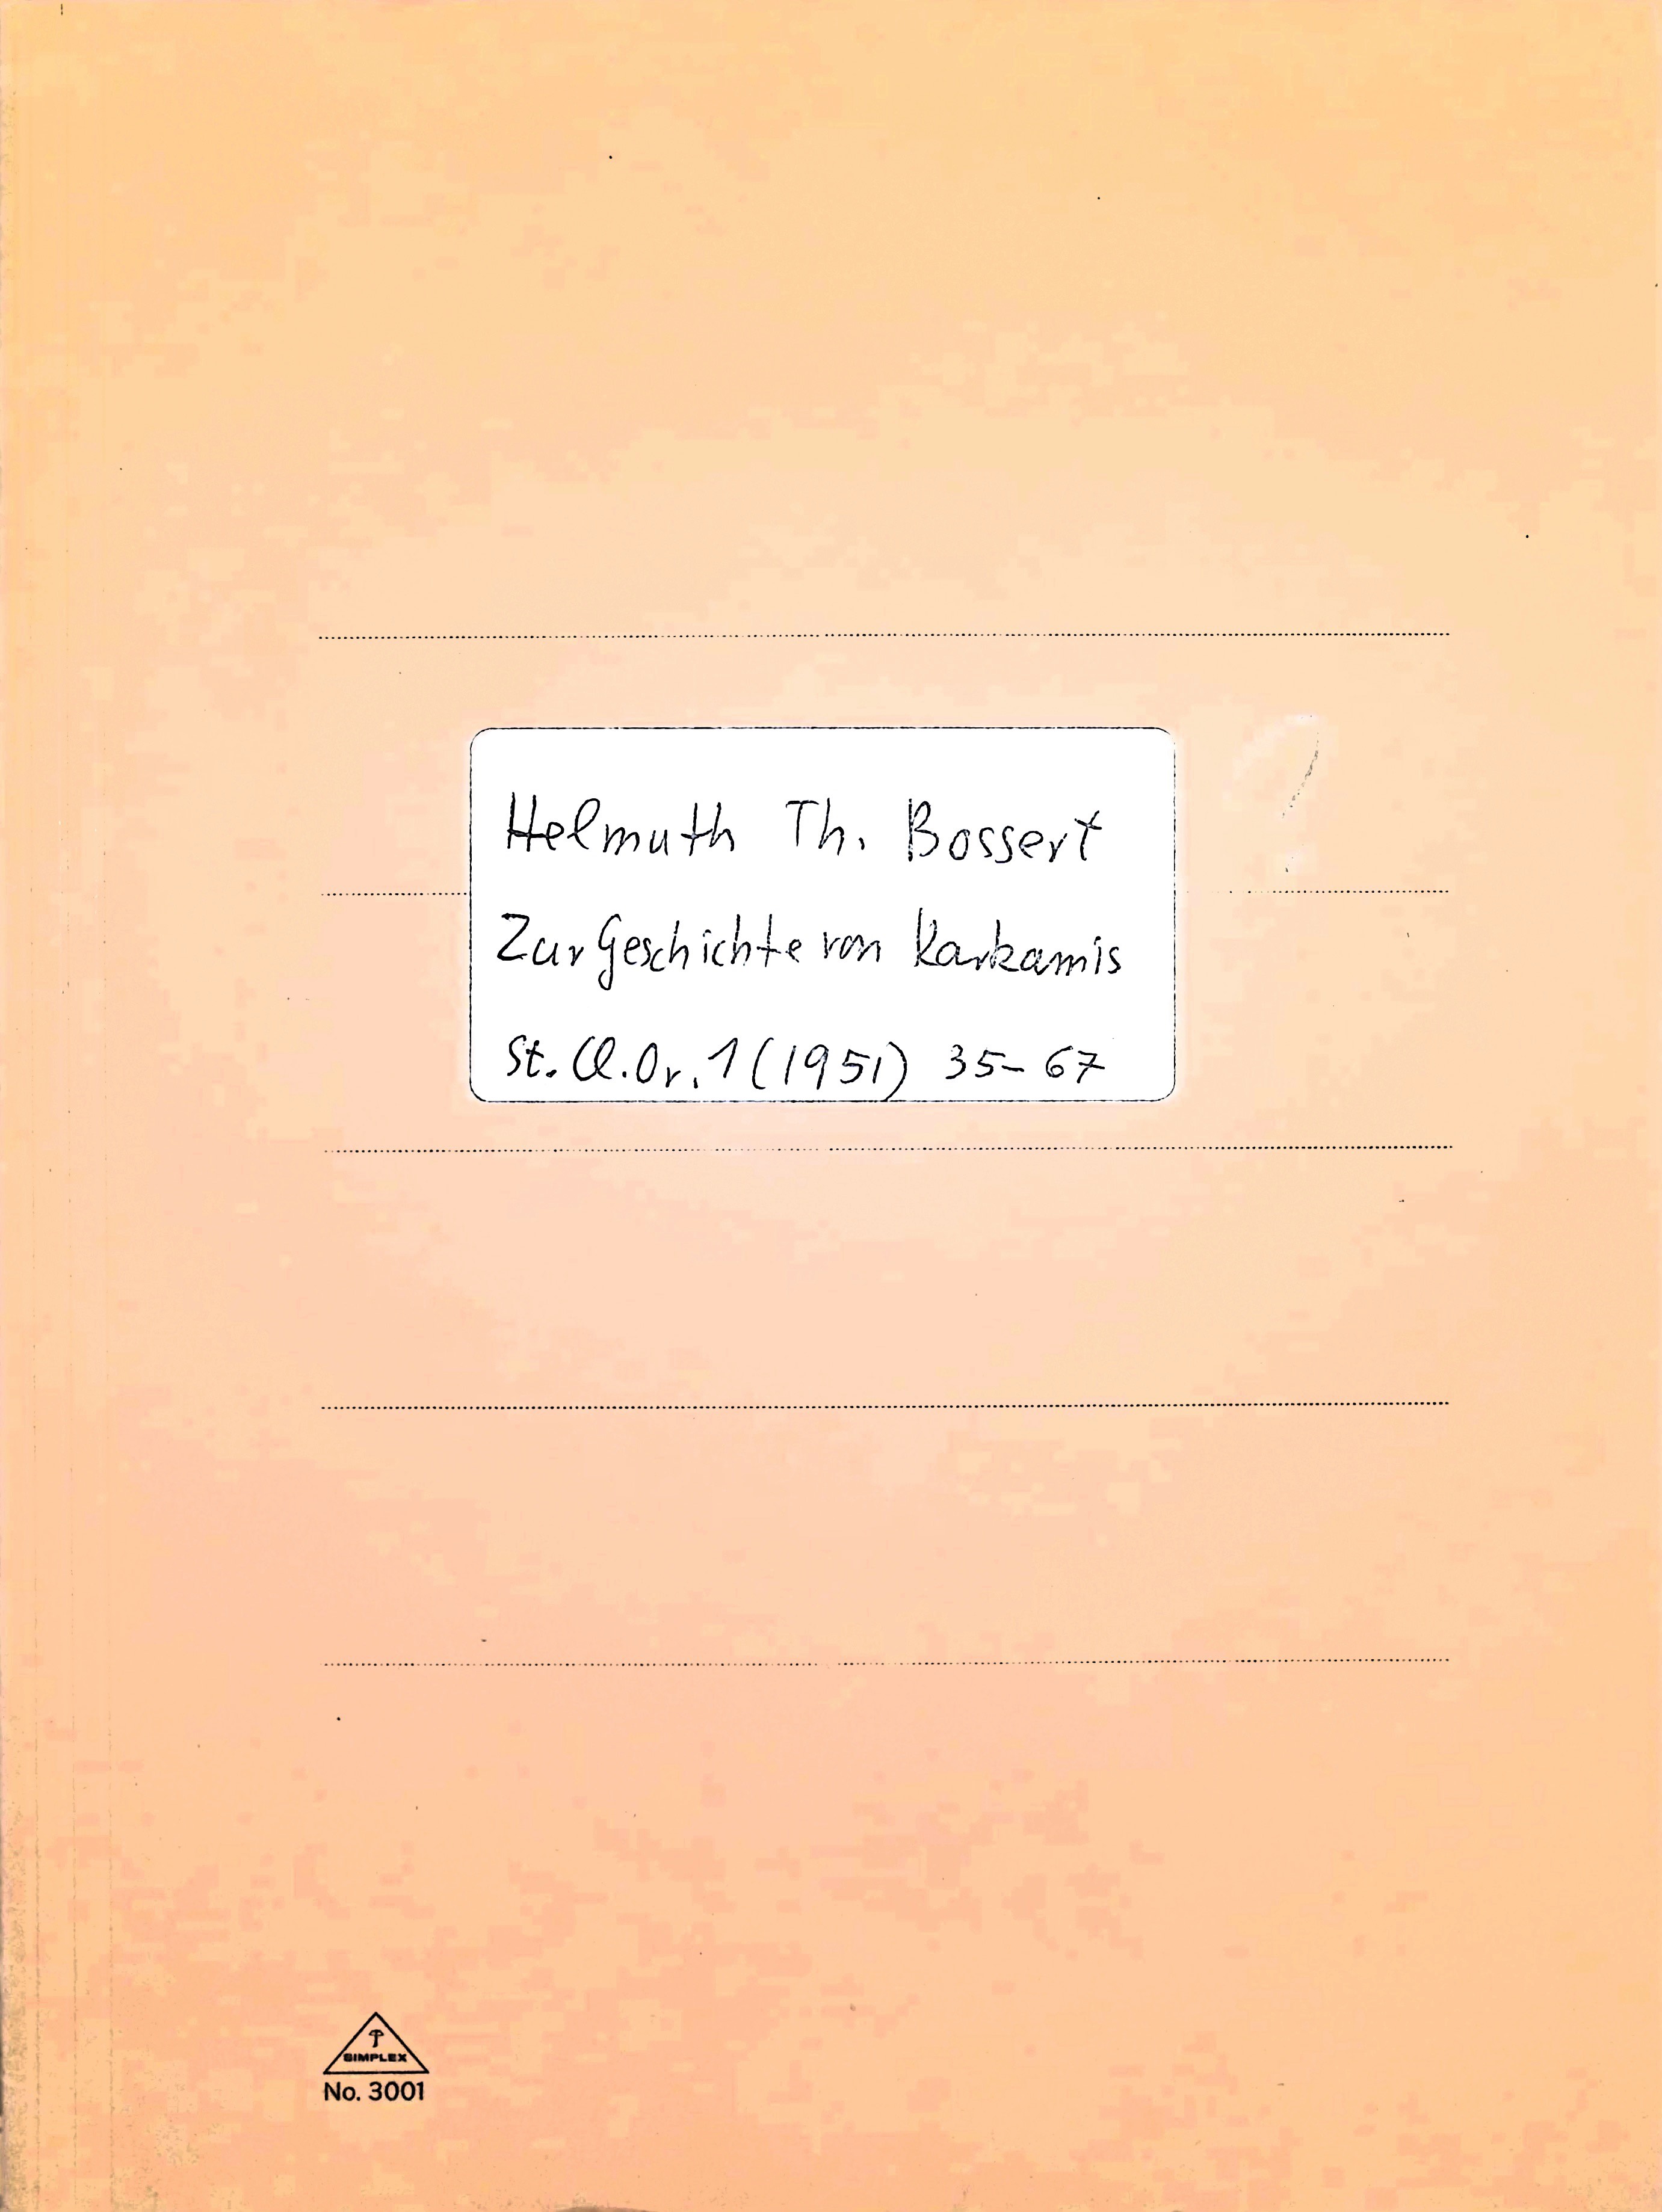 Helmuth Th. Bossert
Zur Geschichte von Karkamis
St. Cl. Or. 1 (1951) 35-67
SIMPLEX
No. 3001